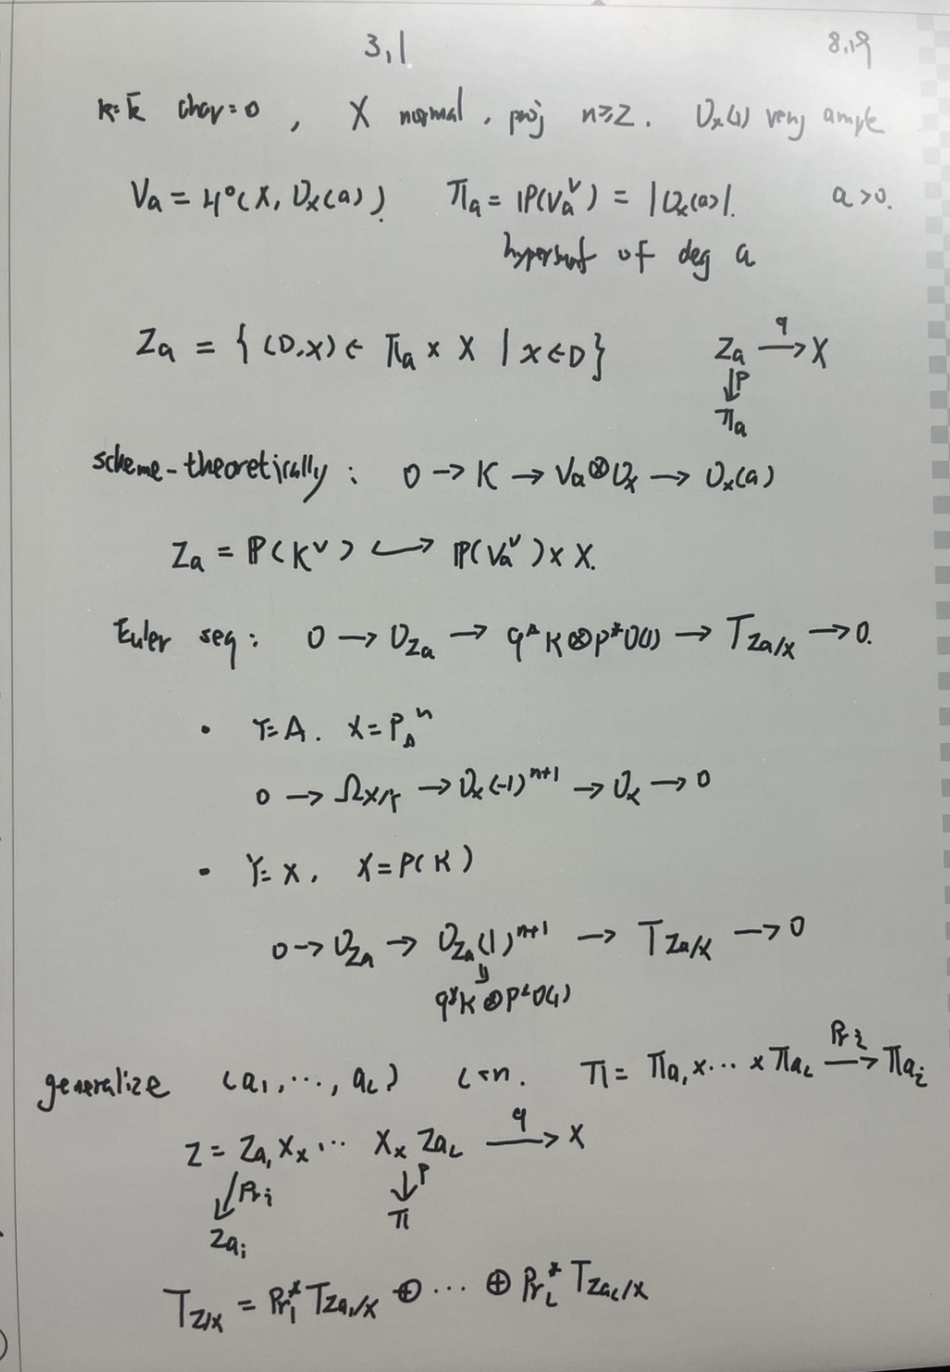 3,1 8.19
k=k̄ char=0 , X normal, proj n≥2. O_X(1) very ample
V_a = H⁰(X, O_X(a)). Π_a = P(V_a^∨) = |O_X(a)|. a>0.
hypersurf of deg a
Z_a = {(D,x) ∈ Π_a × X | x∈D} Z_a →^q X
↓p
Π_a
scheme-theoretically : 0 → K → V_a⊗O_X → O_X(a)
Z_a = P(K^∨) ↪ P(V_a^∨) × X.
Euler seq: 0 → O_{Z_a} → q^*K⊗p^*O(1) → T_{Z_a/X} → 0.
• Y=A. X=P_A^n
0 → Ω_{X/Y} → O_X(-1)^{n+1} → O_X → 0
• Y=X, X=P(K)
0 → O_{Z_a} → O_{Z_a}(1)^{n+1} → T_{Z_a/X} → 0
q^*K⊗p^*O(1)
generalize (a_1,…,a_c) c<n. Π = Π_{a_1}×…×Π_{a_c} →^{Pr_i} Π_{a_i}
Z = Z_{a_1} ×_X … ×_X Z_{a_c} →^q X
↓Pr_i ↓p
Z_{a_i} Π
T_{Z/X} = Pr_1^* T_{Z_{a_1}/X} ⊕ … ⊕ Pr_c^* T_{Z_{a_c}/X}